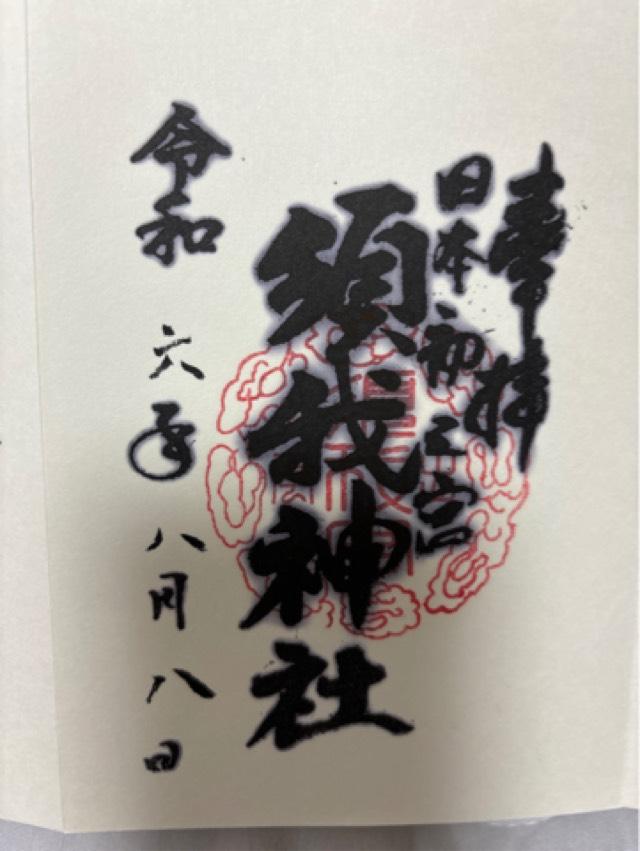 奉拝
日本初之宮
須我神社
令和六年八月八日